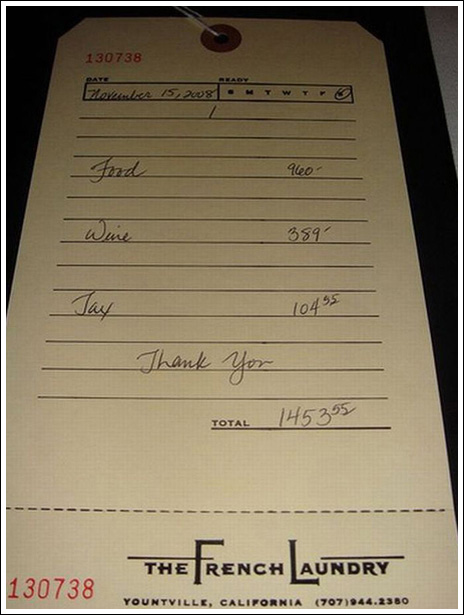 130738
DATE READY
November 15, 2008 S M T W T F S
Food 960-
Wine 389-
Tax 104 55
Thank You
TOTAL 1453 55
THE FRENCH LAUNDRY
130738
YOUNTVILLE, CALIFORNIA (707)944.2380